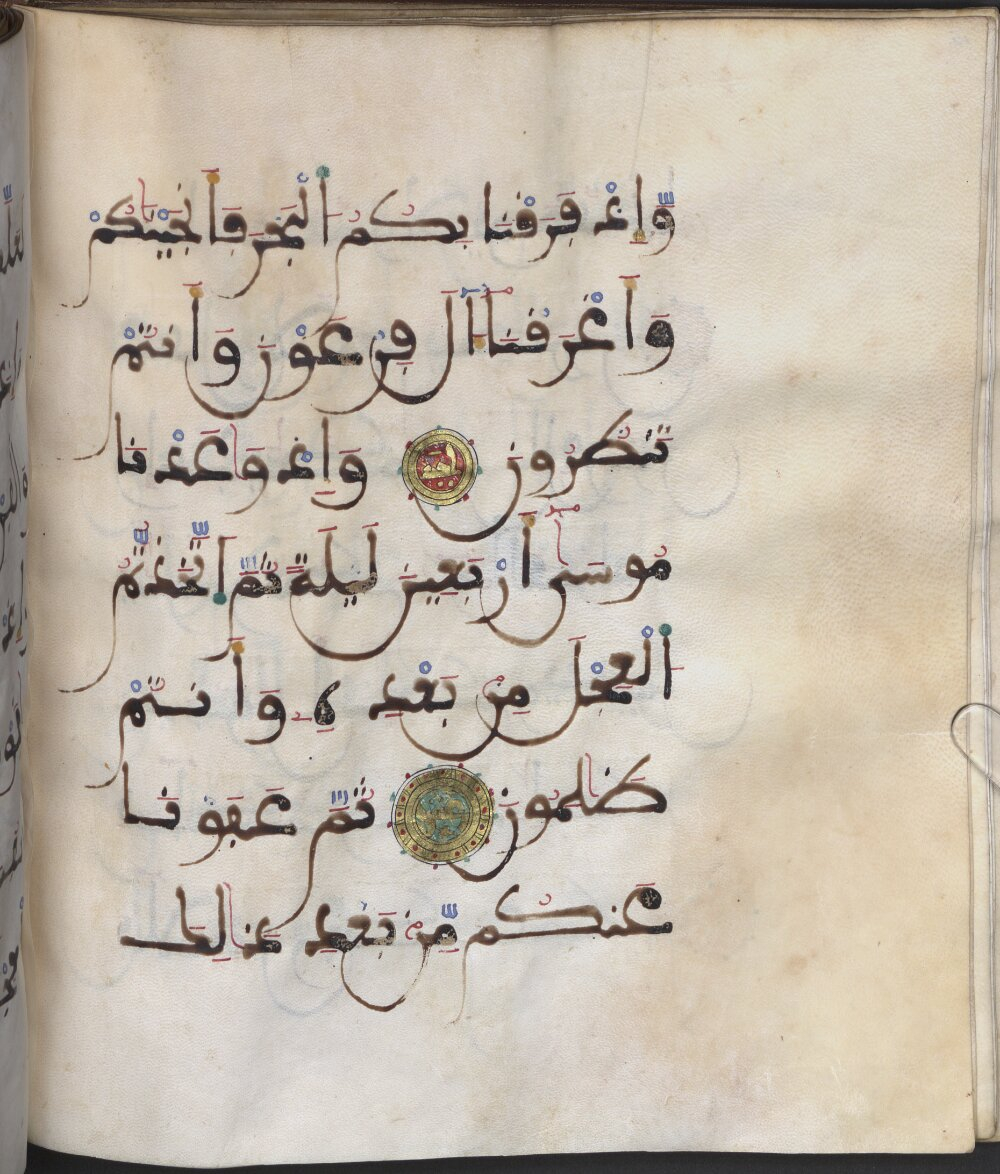 وَّإِذْ فَرَقْنَا بِكُمُ اُ۬لْبَحْرَ فَأَنجَيْنَٰكُمْ
وَأَغْرَقْنَآ ءَالَ فِرْعَوْنَ وَأَنتُمْ
تَنظُرُونَ وَإِذْ وَٰعَدْنَا
مُوسَىٰٓ أَرْبَعِينَ لَيْلَةٗ ثُمَّ اَ۪تَّخَذتُّمُ
اُ۬لْعِجْلَ مِنۢ بَعْدِهِۦ وَأَنتُمْ
ظَٰلِمُونَ ثُمَّ عَفَوْنَا
عَنكُم مِّنۢ بَعْدِ ذَٰلِكَ